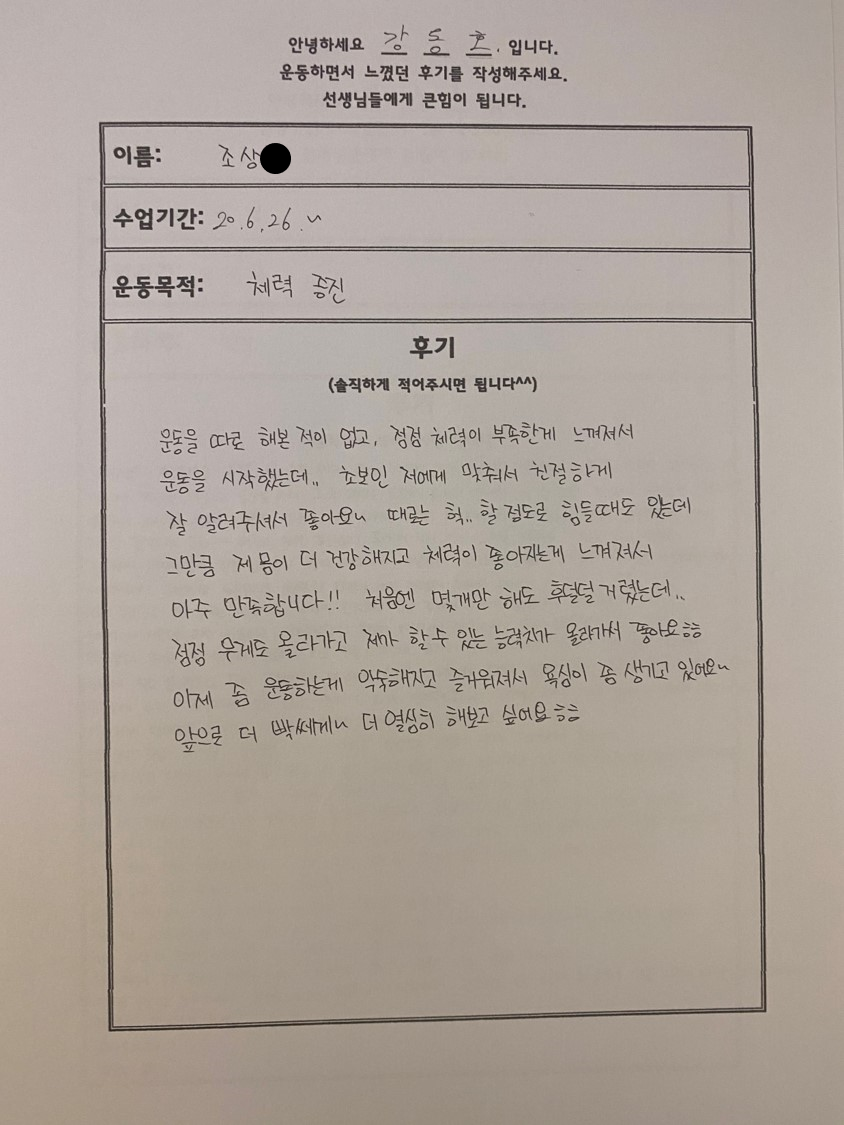 안녕하세요 강 동 호. 입니다.
운동하면서 느꼈던 후기를 작성해주세요.
선생님들에게 큰힘이 됩니다.
이름: 조상
수업기간: 20.6.26.~
운동목적: 체력 증진
후기
(솔직하게 적어주시면 됩니다^^)
운동을 따로 해본 적이 없고, 점점 체력이 부족한게 느껴져서
운동을 시작했는데.. 초보인 저에게 맞춰서 친절하게
잘 알려주셔서 좋아요~ 때로는 헉.. 할 정도로 힘들때도 있는데
그만큼 제 몸이 더 건강해지고 체력이 좋아지는게 느껴져서
아주 만족합니다!! 처음엔 몇개만 해도 후덜덜 거렸는데..
점점 무게도 올라가고 제가 할 수 있는 능력치가 올라가서 좋아요ㅎㅎ
이제 좀 운동하는게 익숙해지고 즐거워져서 욕심이 좀 생기고 있어요~
앞으로 더 빡쎄게~ 더 열심히 해보고 싶어요ㅎㅎ